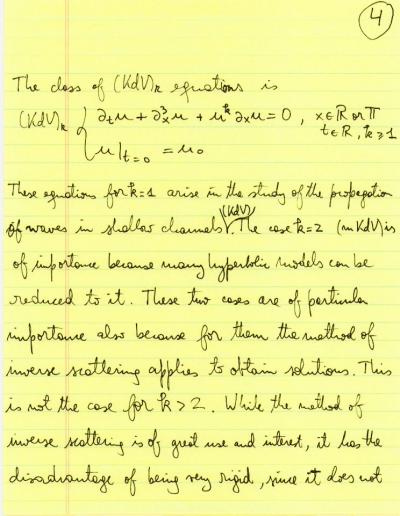 4
The class of (KdV)k equations is
(KdV)k { ∂t u + ∂x³ u + u^k ∂x u = 0 , x∈ℝ or 𝕋
t∈ℝ, k≥1
u|t=0 = u0
These equations for k=1 arise in the study of the propagation
(KdV)
of waves in shallow channels. The case k=2 (mKdV) is
of importance because many hyperbolic models can be
reduced to it. These two cases are of particular
importance also because for them the method of
inverse scattering applies to obtain solutions. This
is not the case for k>2. While the method of
inverse scattering is of great use and interest, it has the
disadvantage of being very rigid, since it does not